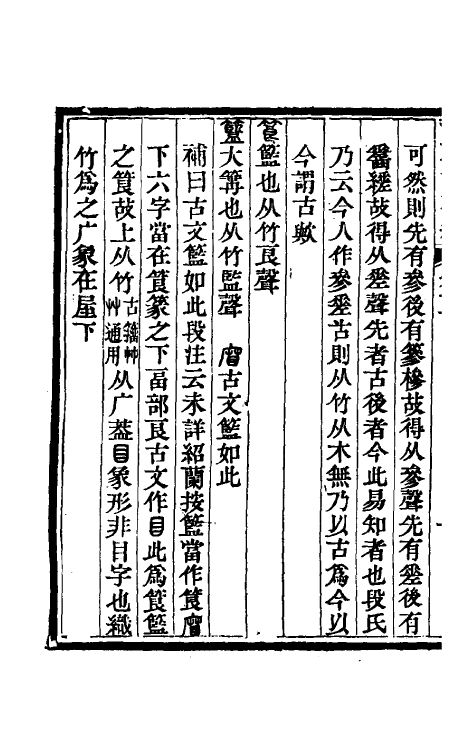 可然則先有參後有篸槮故得从參聲先有㕘後有
䉵䅟故得从㕘聲先者古後者今此易知者也段氏
乃云今人作參㕘古則从竹从木無乃以古爲今以
今謂古歟
筤籃也从竹良聲
籃大篝也从竹監聲　𥴯古文籃如此
補曰古文籃如此段注云未詳紹蘭按籃當作筤𥴯
下六字當在筤篆之下畗部良古文作目此爲筤籃
之筤故上从竹古籀艸艸通用从广葢目象形非日字也織
竹爲之广象在屋下